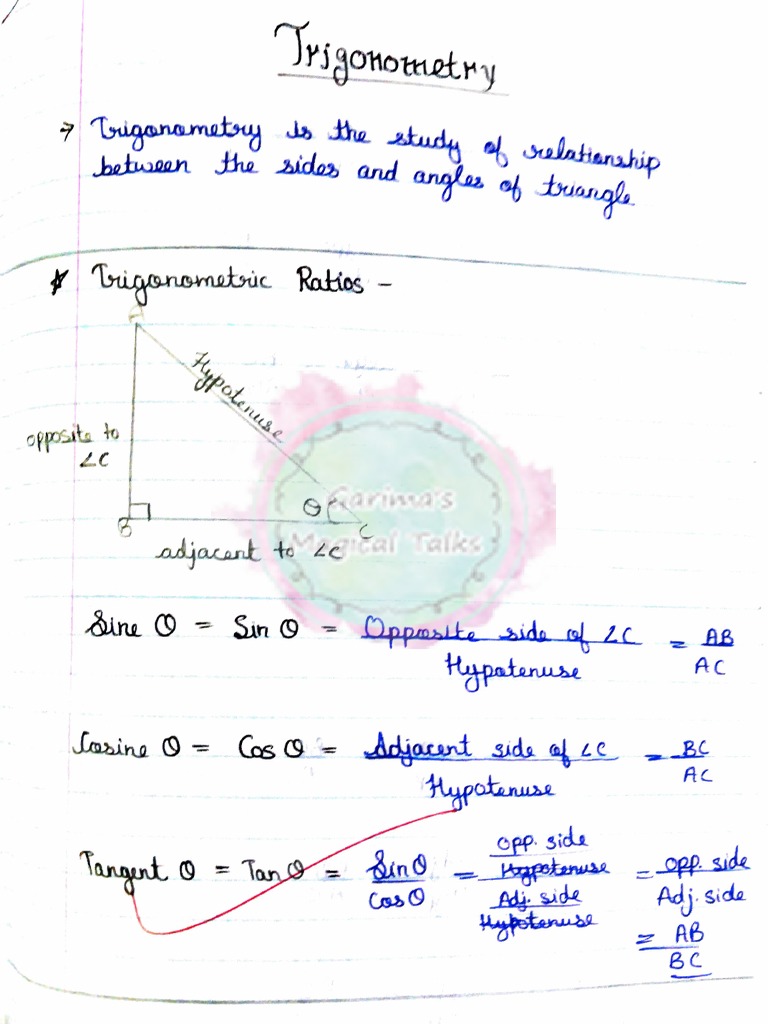 Trigonometry
→ Trigonometry is the study of relationship
between the sides and angles of triangle
* Trigonometric Ratios -
A
Hypotenuse
opposite to
∠C
θ
B
C
adjacent to ∠C
Garima's
Magical Talks
Sine θ = Sin θ = Opposite side of ∠C / Hypotenuse = AB / AC
Cosine θ = Cos θ = Adjacent side of ∠C / Hypotenuse = BC / AC
Tangent θ = Tan θ = Sin θ / Cos θ = Opp. side / Hypotenuse / Adj. side / Hypotenuse = Opp. side / Adj. side
= AB / BC